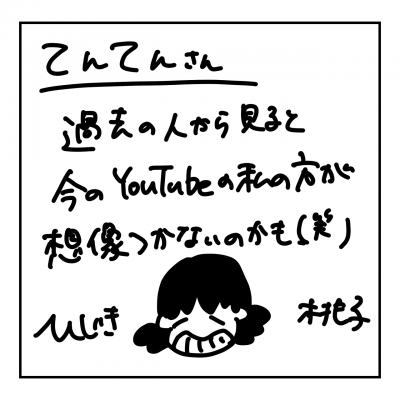 てんてんさん
過去の人から見ると
今のYouTubeの私の方が
想像つかないのかも(笑)
ひじき 桃子